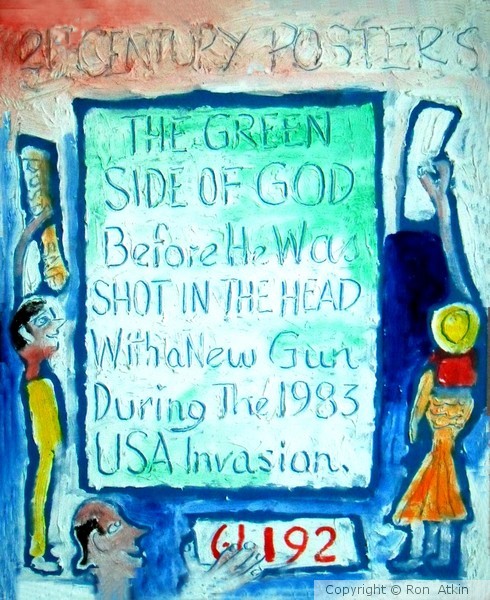 21st CENTURY POSTERS
THE GREEN
SIDE OF GOD
Before He Was
SHOT IN THE HEAD
With a New Gun
During The 1983
USA Invasion.
192
Copyright © Ron Atkin